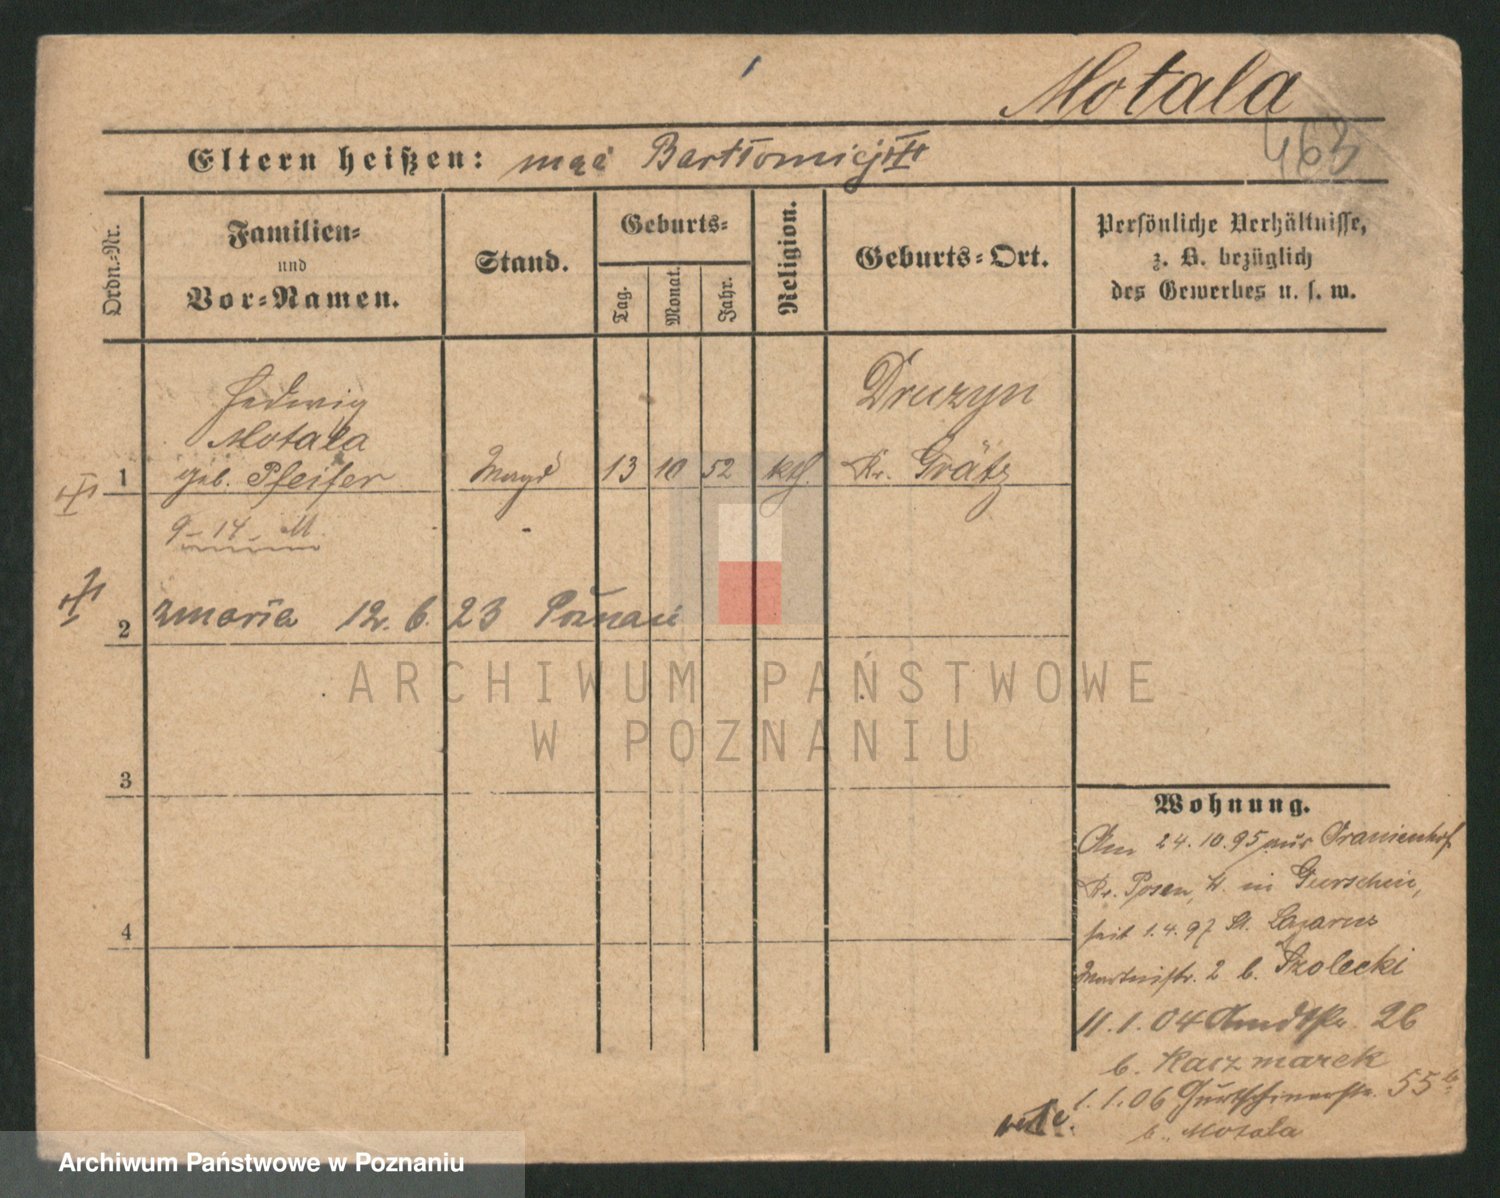 Motala
463
Eltern heißen: mąż Bartłomiej
Ordn.-Nr.
Familien-
und
Vor-Namen.
Stand.
Geburts-
Tag.
Monat.
Jahr.
Religion.
Geburts-Ort.
Persönliche Verhältnisse,
z. B. bezüglich
des Gewerbes u. s. w.
Hedwig
Motala
geb. Pfeifer
1
Magd
13
10
52
kth.
Druzyn
Kr. Grätz
9-14- M.
2
zmarła 12. 6. 23 Poznań
3
4
ARCHIWUM PAŃSTWOWE
W POZNANIU
Wohnung.
Am 24.10.95 aus
Kr. Posen, W. in Gurschin,
seit 1.4.97 St. Lazarus
Martinstr. 2 b. Szolecki
11.1.04 Arndtstr. 26
b. Kaczmarek
1.1.06 Gurtschinerstr. 55
b. Motala
verte.
Archiwum Państwowe w Poznaniu